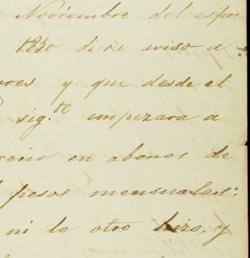 Noviembre del
1880 se de aviso a
ores y que desde el
sig.te empezara a
en abonos de
pesos mensuales:
ni lo otro hizo, y